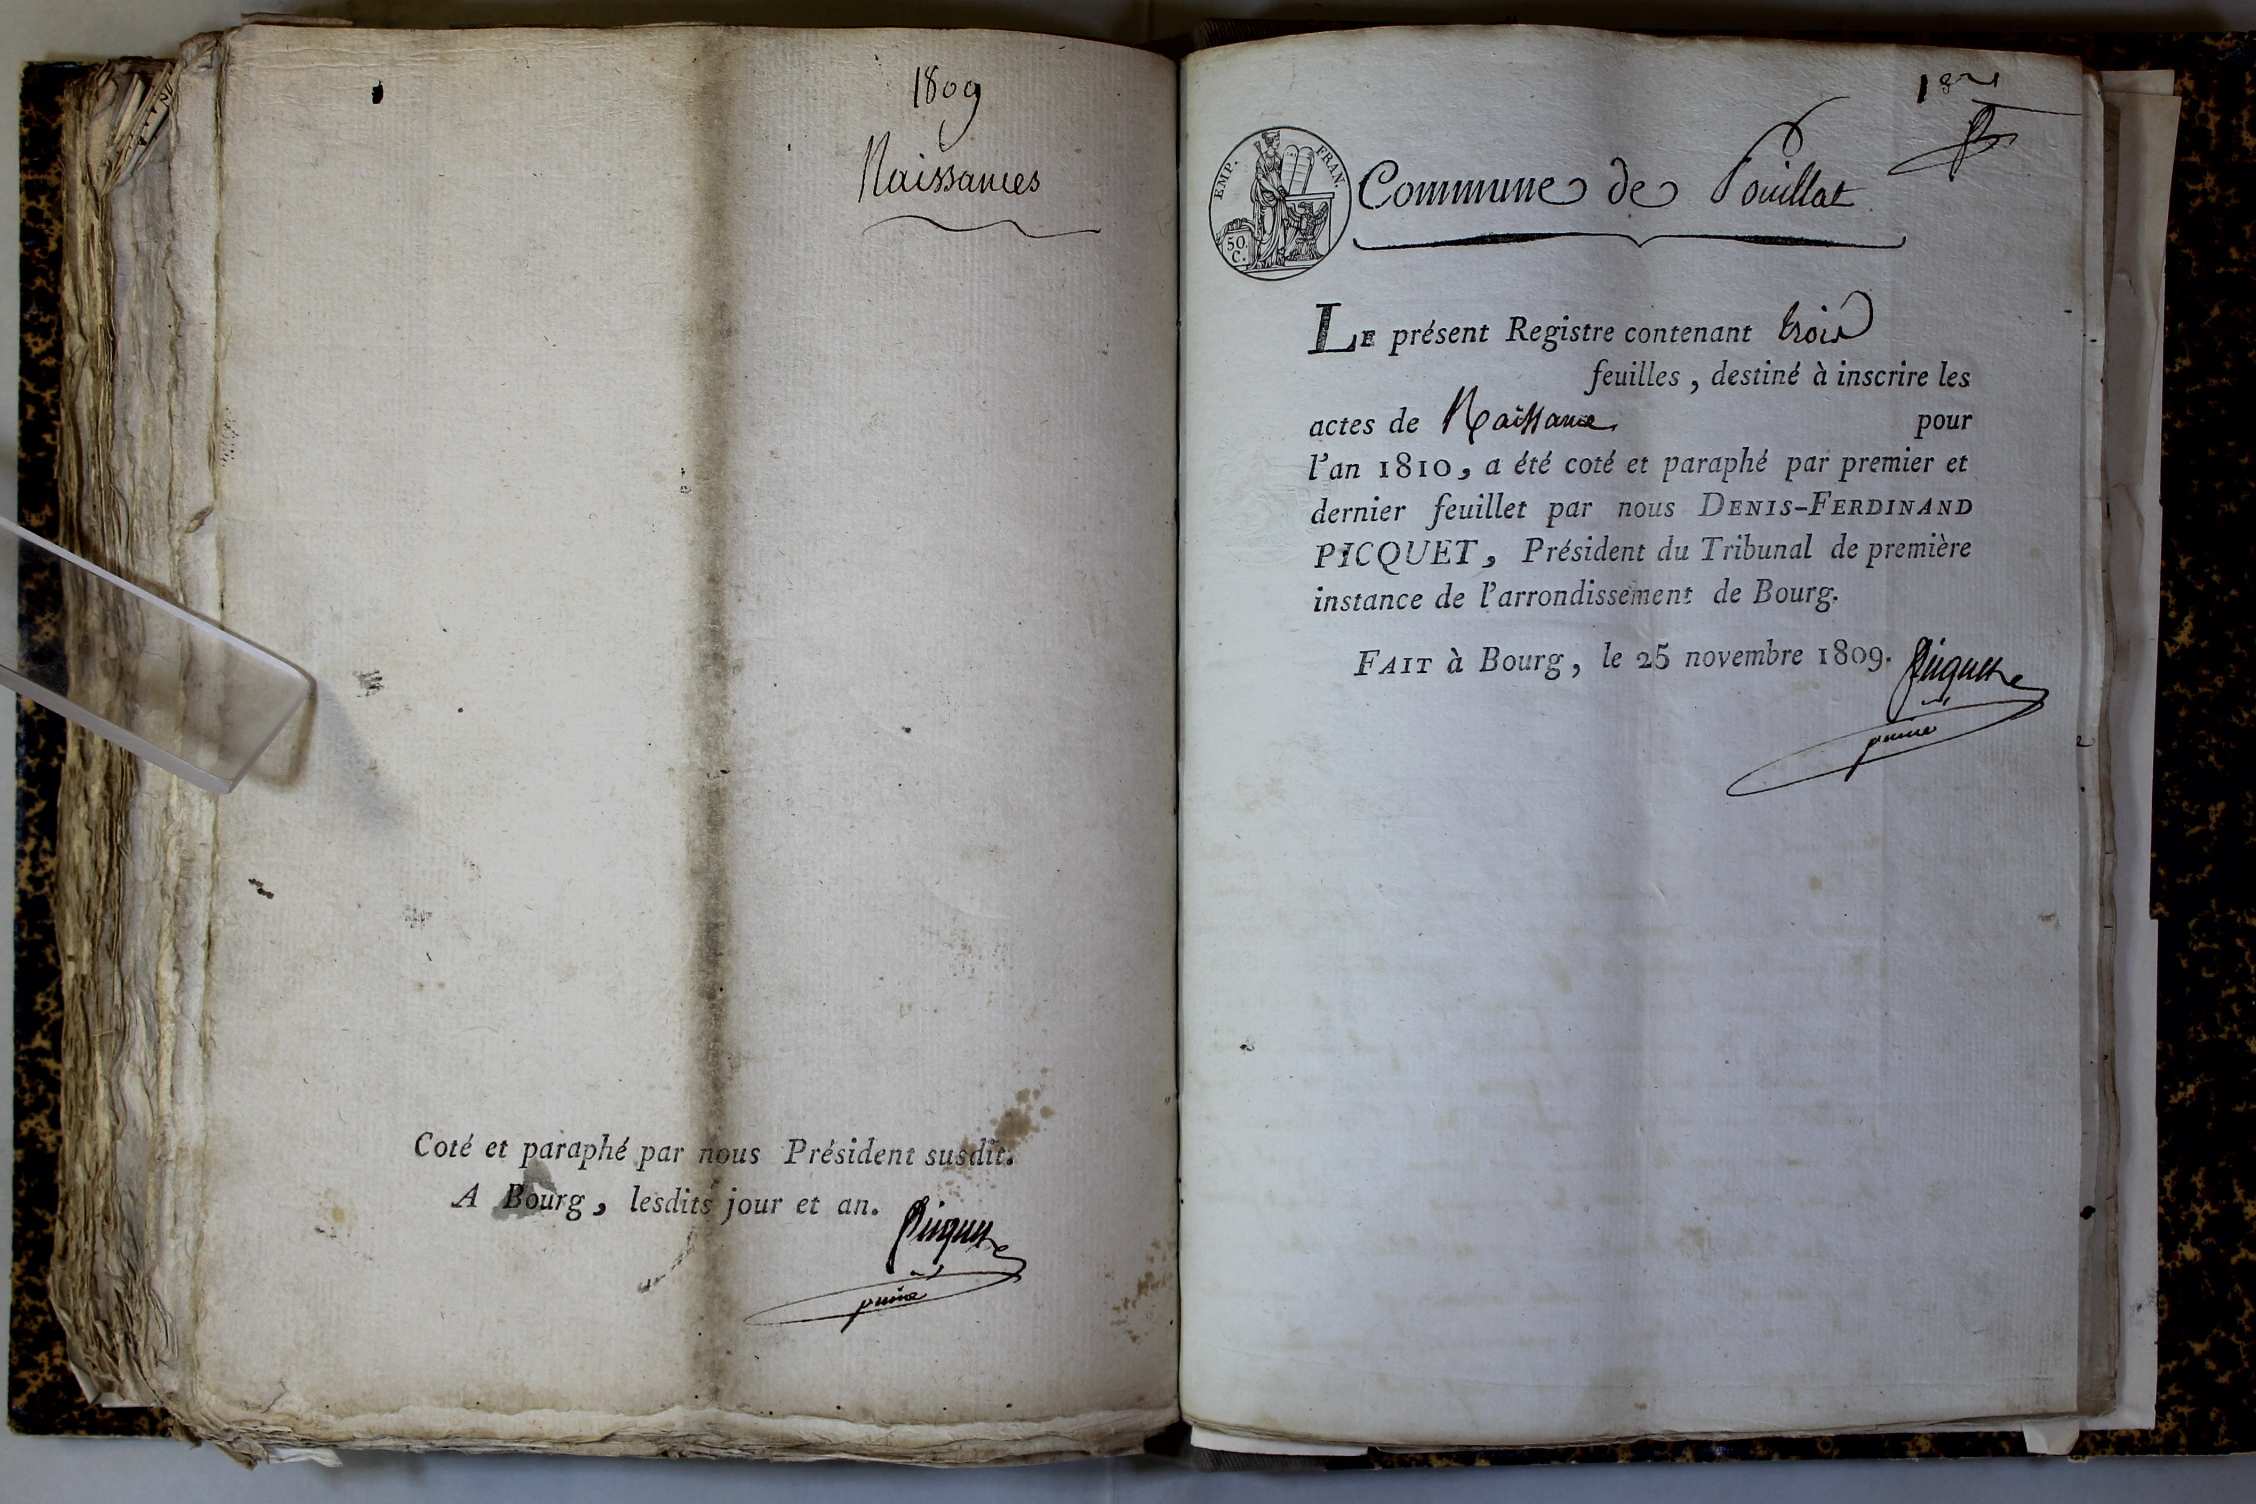 1809
Naissances
Coté et paraphé par nous Président susdit.
A Bourg, lesdits jour et an.
Picquet
EMP. FRAN.
50.
C.
Commune de Pouillat
LE présent Registre contenant trois
feuilles, destiné à inscrire les
actes de Naissance pour
l'an 1810, a été coté et paraphé par premier et
dernier feuillet par nous DENIS-FERDINAND
PICQUET, Président du Tribunal de première
instance de l'arrondissement de Bourg.
FAIT à Bourg, le 25 novembre 1809.
Picquet